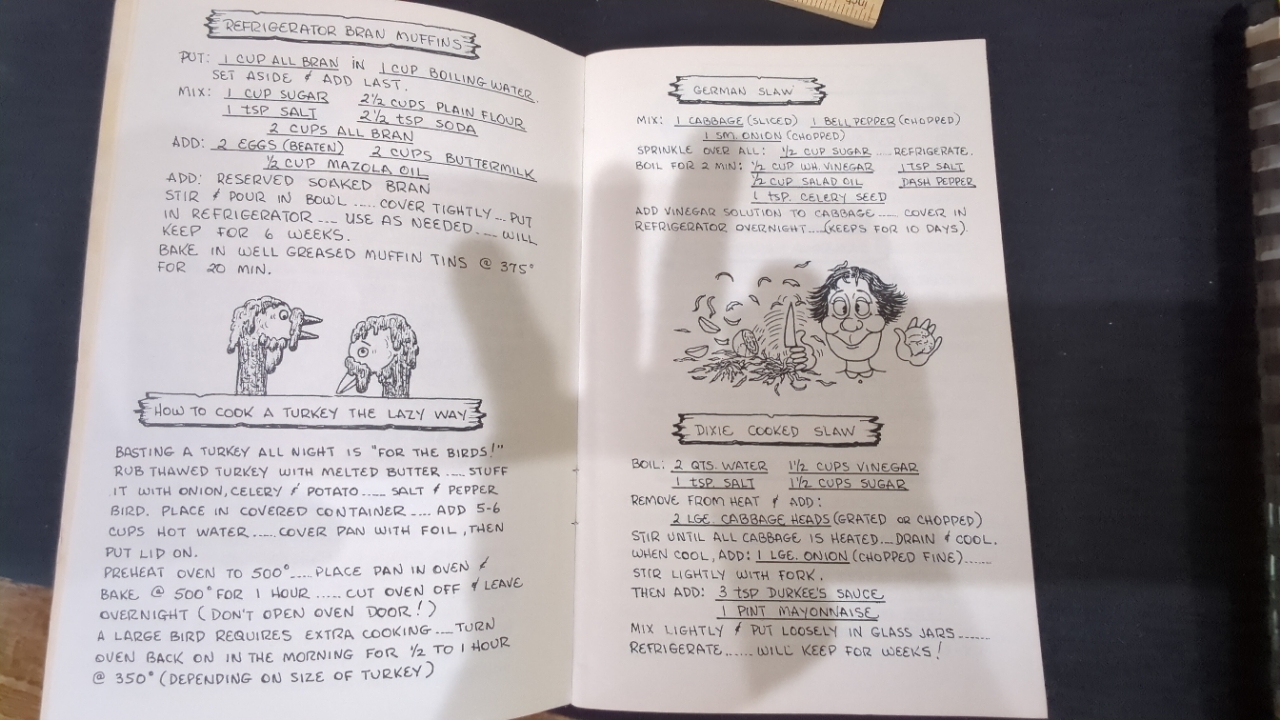 REFRIGERATOR BRAN MUFFINS
PUT: 1 CUP ALL BRAN IN 1 CUP BOILING WATER.
SET ASIDE & ADD LAST.
MIX: 1 CUP SUGAR 2½ CUPS PLAIN FLOUR
1 tSP SALT 2½ tSP SODA
2 CUPS ALL BRAN
ADD: 2 EGGS (BEATEN) 2 CUPS BUTTERMILK
½ CUP MAZOLA OIL
ADD: RESERVED SOAKED BRAN
STIR & POUR IN BOWL ..... COVER TIGHTLY ... PUT
IN REFRIGERATOR .... USE AS NEEDED .... WILL
KEEP FOR 6 WEEKS.
BAKE IN WELL GREASED MUFFIN TINS @ 375°
FOR 20 MIN.
HOW TO COOK A TURKEY THE LAZY WAY
BASTING A TURKEY ALL NIGHT IS "FOR THE BIRDS!"
RUB THAWED TURKEY WITH MELTED BUTTER ..... STUFF
IT WITH ONION, CELERY & POTATO ..... SALT & PEPPER
BIRD. PLACE IN COVERED CONTAINER ..... ADD 5-6
CUPS HOT WATER ..... COVER PAN WITH FOIL, THEN
PUT LID ON.
PREHEAT OVEN TO 500° ..... PLACE PAN IN OVEN &
BAKE @ 500° FOR 1 HOUR ..... CUT OVEN OFF & LEAVE
OVERNIGHT (DON'T OPEN OVEN DOOR!)
A LARGE BIRD REQUIRES EXTRA COOKING ..... TURN
OVEN BACK ON IN THE MORNING FOR ½ TO 1 HOUR
@ 350° (DEPENDING ON SIZE OF TURKEY)
GERMAN SLAW
MIX: 1 CABBAGE (SLICED) 1 BELL PEPPER (CHOPPED)
1 SM. ONION (CHOPPED)
SPRINKLE OVER ALL: ½ CUP SUGAR ..... REFRIGERATE.
BOIL FOR 2 MIN: ½ CUP WH. VINEGAR 1 TSP SALT
½ CUP SALAD OIL DASH PEPPER
1 tSP. CELERY SEED
ADD VINEGAR SOLUTION TO CABBAGE ..... COVER IN
REFRIGERATOR OVERNIGHT ..... (KEEPS FOR 10 DAYS).
DIXIE COOKED SLAW
BOIL: 2 QTS. WATER 1½ CUPS VINEGAR
1 tSP. SALT 1½ CUPS SUGAR
REMOVE FROM HEAT & ADD:
2 LGE. CABBAGE HEADS (GRATED OR CHOPPED)
STIR UNTIL ALL CABBAGE IS HEATED .... DRAIN & COOL.
WHEN COOL, ADD: 1 LGE. ONION (CHOPPED FINE) ......
STIR LIGHTLY WITH FORK.
THEN ADD: 3 tSP DURKEE'S SAUCE
1 PINT MAYONNAISE
MIX LIGHTLY & PUT LOOSELY IN GLASS JARS .......
REFRIGERATE ...... WILL KEEP FOR WEEKS!